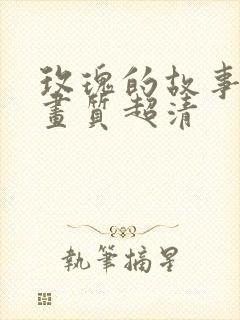 玫瑰的故事
畫質超清
執筆摘星